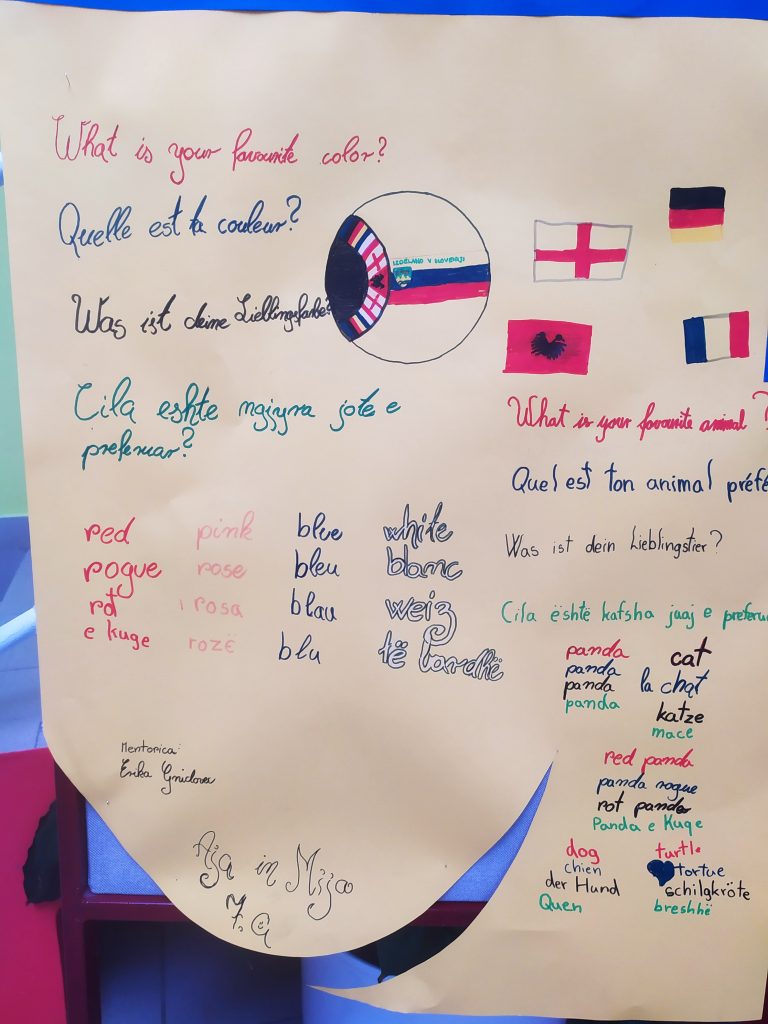 What is your favourite color?
Quelle est ta couleur?
Was ist deine Lieblingsfarbe?
Cila eshte ngjyra jote e
preferuar?
IZDELANO V SLOVENIJI
red pink blue white
rogue rose bleu blanc
rot rosa blau weiz
e kuqe rozë blu të bardhë
Mentorica:
Erika
Aja in Mija
7. G
What is your favourite animal?
Quel est ton animal préfé
Was ist dein Lieblingstier?
Cila është kafsha juaj e preferu
panda cat
panda la chat
panda katze
panda mace
red panda
panda rogue
rot panda
Panda e Kuqe
dog turtle
chien tortue
der Hund schilgkröte
Quen breshhë